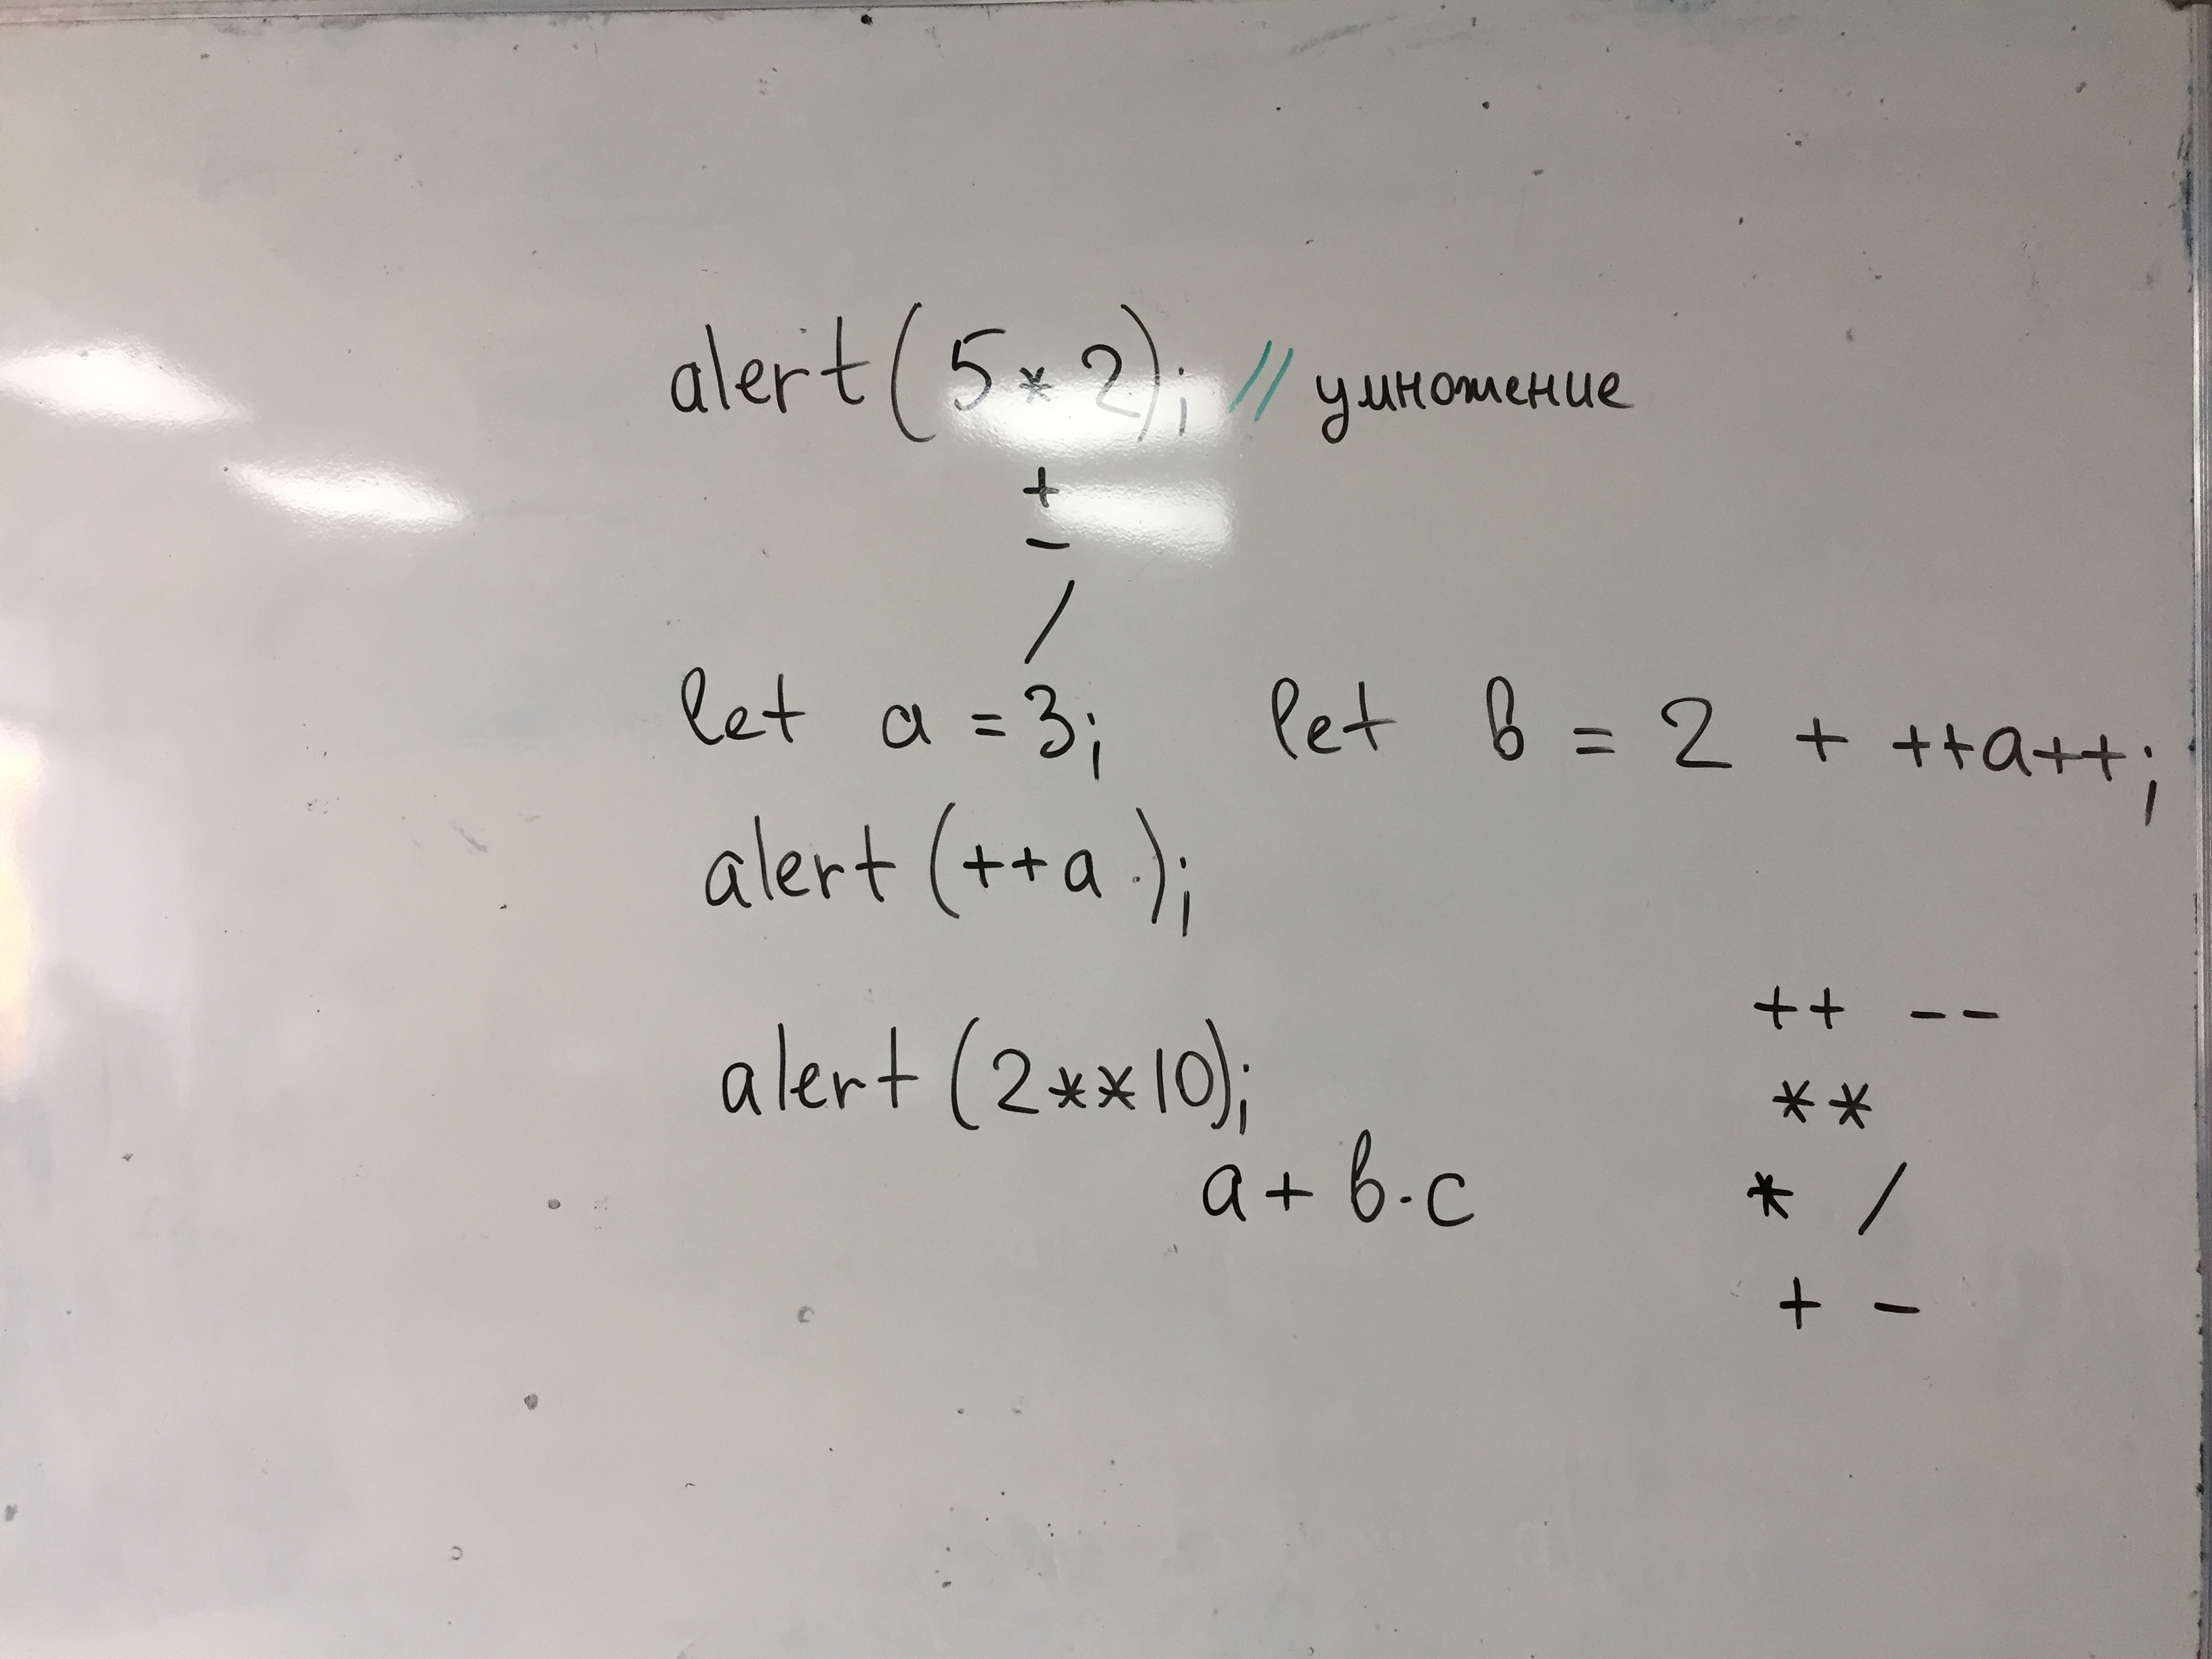 alert(5*2); // умножение
+
-
/
let a=3; let b = 2 + ++a++;
alert(++a);
++ --
alert(2**10);
**
a+b·c
* /
+ -